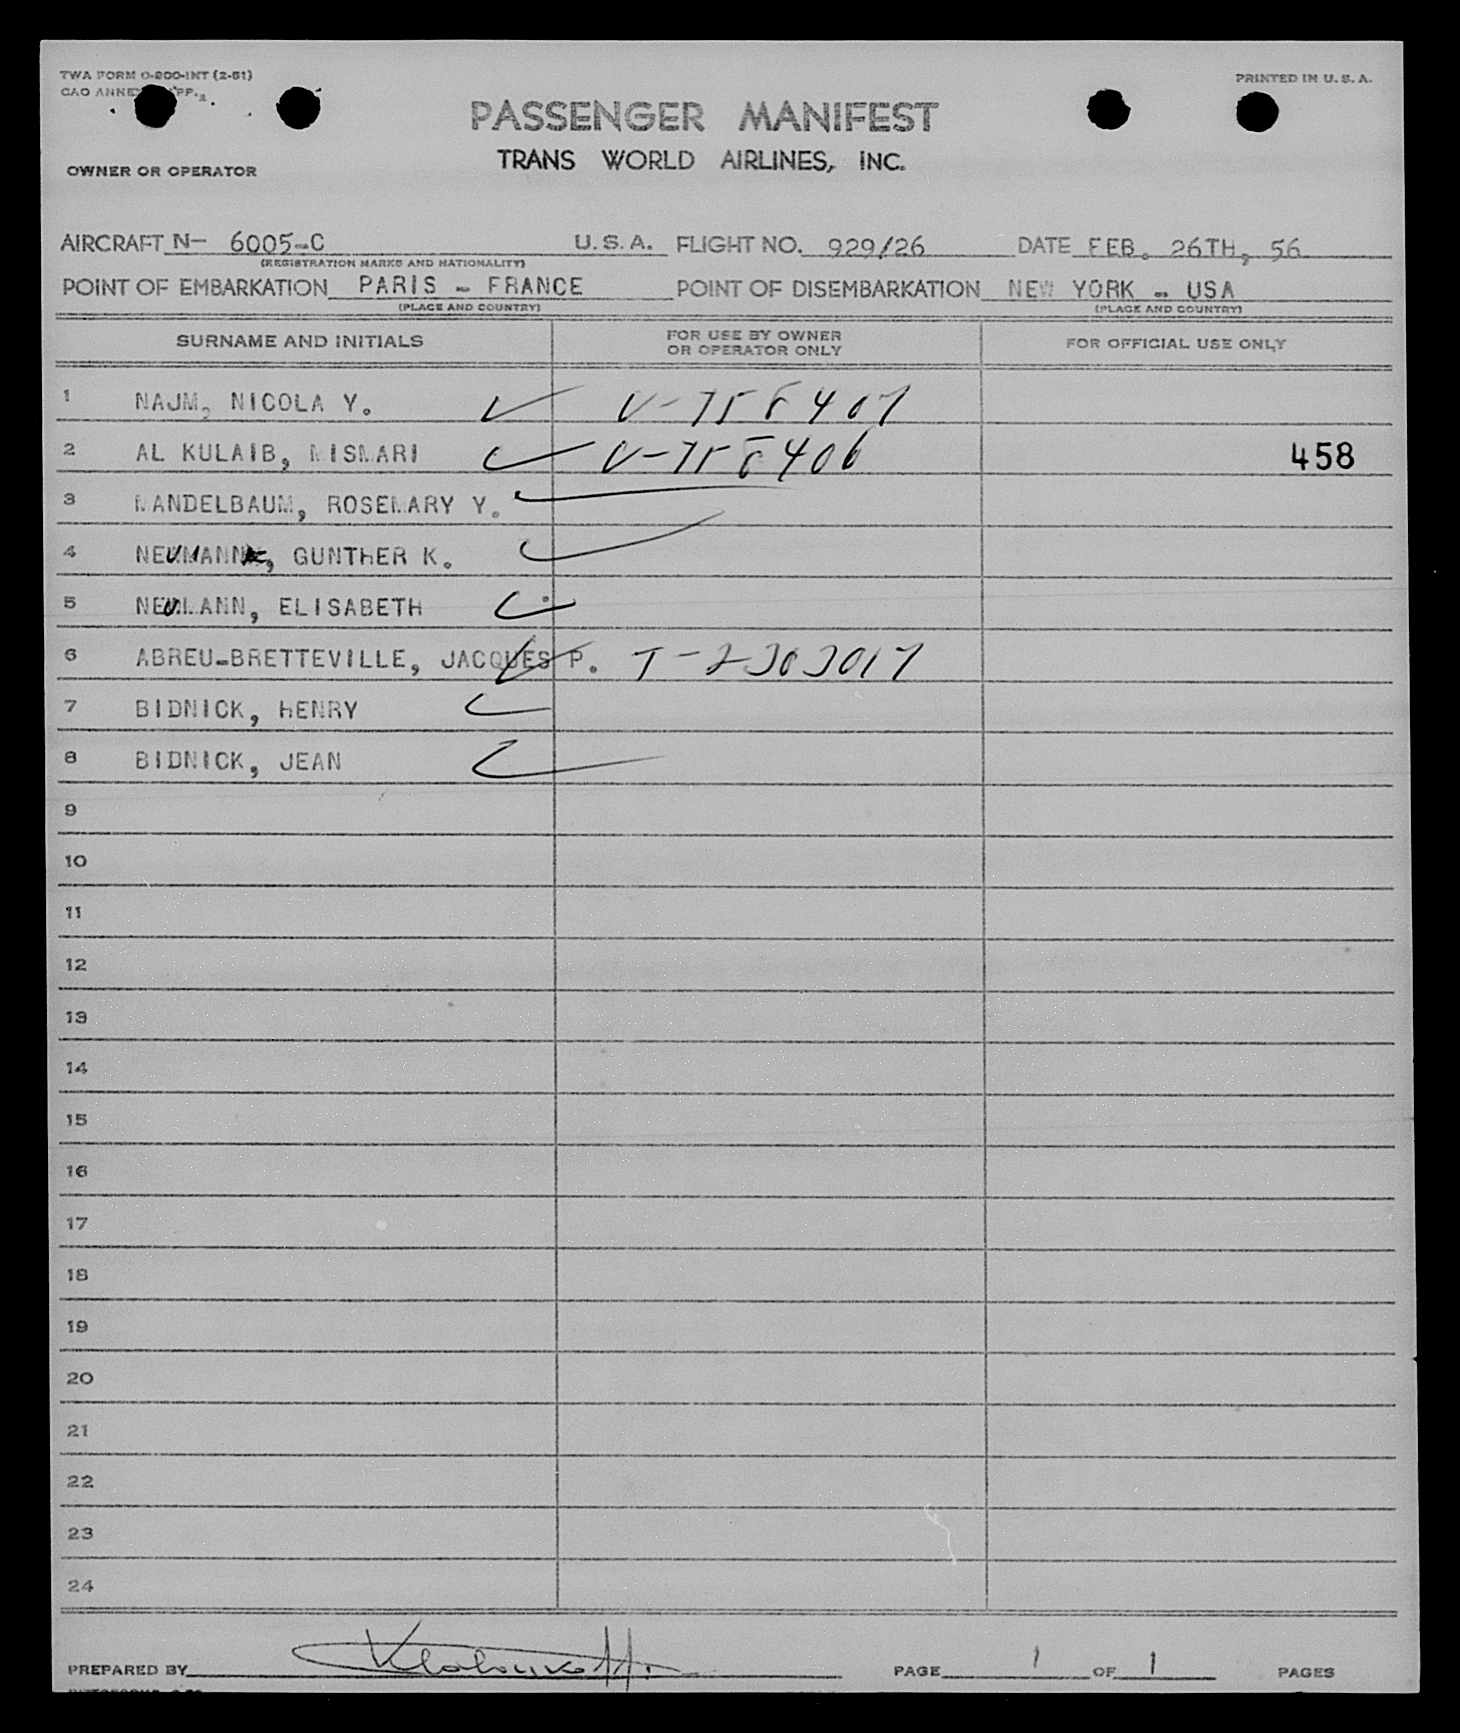 TWA FORM O-200-INT (2-51)
PRINTED IN U. S. A.
PASSENGER MANIFEST
TRANS WORLD AIRLINES, INC.
OWNER OR OPERATOR
AIRCRAFT N- 6005-C U. S. A. FLIGHT NO. 929/26 DATE FEB. 26TH, 56
(REGISTRATION MARKS AND NATIONALITY)
POINT OF EMBARKATION PARIS - FRANCE POINT OF DISEMBARKATION NEW YORK - USA
(PLACE AND COUNTRY) (PLACE AND COUNTRY)
SURNAME AND INITIALS FOR USE BY OWNER OR OPERATOR ONLY FOR OFFICIAL USE ONLY
1 NAJM, NICOLA Y. V-758407
2 AL KULAIB, MISMARI V-758406 458
3 MANDELBAUM, ROSEMARY Y.
4 NEUMANN, GUNTHER K.
5 NEUMANN, ELISABETH
6 ABREU-BRETTEVILLE, JACQUES P. T-2303017
7 BIDNICK, HENRY
8 BIDNICK, JEAN
9
10
11
12
13
14
15
16
17
18
19
20
21
22
23
24
PREPARED BY PAGE 1 OF 1 PAGES